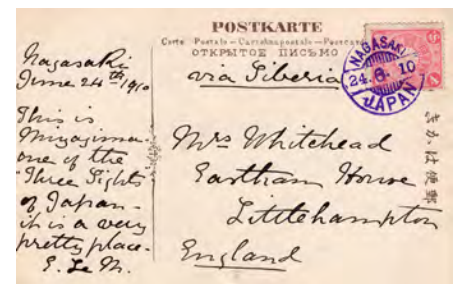 POSTKARTE
Carte Postale – Cartolina postale – Postcard
ОТКРЫТОЕ ПИСЬМО
via Siberia
NAGASAKI
24. 6. 10
JAPAN
Nagasaki
June 24th 1910
This is
Miyajima.
one of the
"Three Sights
of Japan -
it is a very
pretty place.
E. Le M.
Mrs Whitehead
Eastham House
Littlehampton
England
きかは便郵